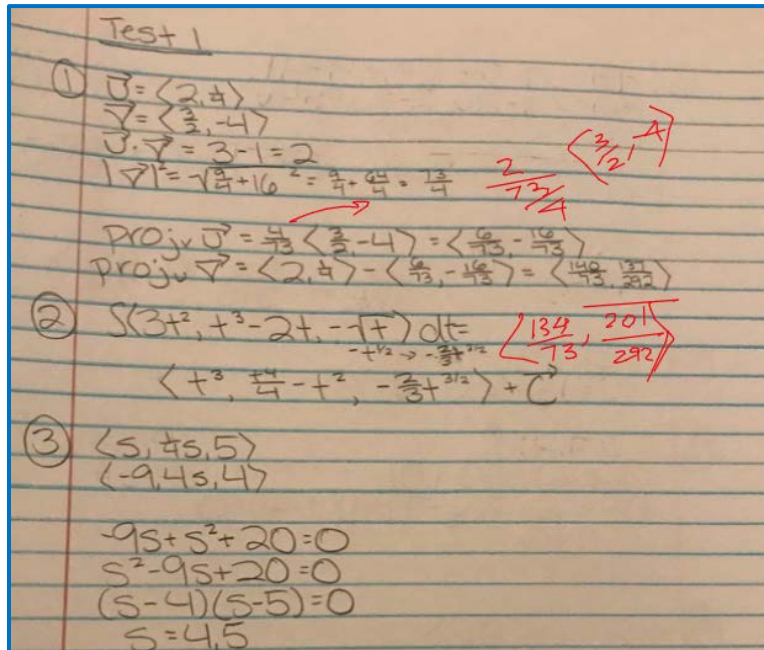 Test 1
① U⃗ = ⟨2, ¼⟩
V⃗ = ⟨3/2, -4⟩
U⃗ · V⃗ = 3 - 1 = 2
|V⃗|² = √(9/4 + 16)² = 9/4 + 64/4 = 73/4
2/(73/4) ⟨3/2, -4⟩
proj_v U⃗ = 4/73 ⟨3/2, -4⟩ = ⟨6/73, -16/73⟩
proj_u V⃗ = ⟨2, ¼⟩ - ⟨6/73, -16/73⟩ = ⟨140/73, 137/292⟩
② ∫⟨3t², t³ - 2t, -√t⟩ dt =
-t^1/2 → -2/3 t^3/2
⟨134/73, 201/292⟩
⟨t³, t⁴/4 - t², -2/3 t^3/2⟩ + C⃗
③ ⟨s, ¼s, 5⟩
⟨-9, 4s, 4⟩
-9s + s² + 20 = 0
s² - 9s + 20 = 0
(s - 4)(s - 5) = 0
s = 4, 5